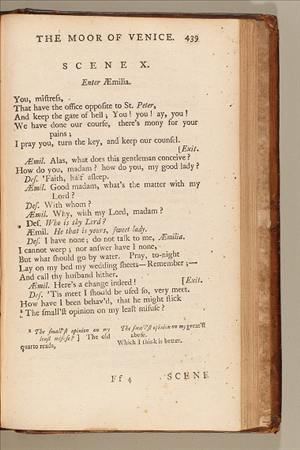 THE MOOR OF VENICE. 439
SCENE X.
Enter Æmilia.
You, miſtreſs,
That have the office oppoſite to St. Peter,
And keep the gate of hell; You! you! ay, you!
We have done our courſe, there's mony for your
pains;
I pray you, turn the key, and keep our counſel.
[Exit.
Æmil. Alas, what does this gentleman conceive?
How do you, madam? how do you, my good lady?
Deſ. 'Faith, half aſleep.
Æmil. Good madam, what's the matter with my
Lord?
Deſ. With whom?
Æmil. Why, with my Lord, madam?
* Deſ. Who is thy Lord?
Æmil. He that is yours, ſweet lady.
Deſ. I have none; do not talk to me, Æmilia.
I cannot weep; nor anſwer have I none;
But what ſhould go by water. Pray, to-night
Lay on my bed my wedding ſheets—Remember;—
And call thy huſband hither.
Æmil. Here's a change indeed! [Exit.
Deſ. 'Tis meet I ſhould be uſed ſo, very meet.
How have I been behav'd, that he might ſtick
The ſmall'ſt opinion on my leaſt miſuſe?
The ſmall'ſt opinion on my
leaſt miſuſe? ] The old
quarto reads,
The ſmall'ſt opinion on my great'ſt
abuſe.
Which I think is better.
Ff 4 SCENE